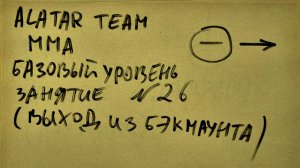 ALATAR TEAM
MMA
БАЗОВЫЙ УРОВЕНЬ
ЗАНЯТИЕ №26
(ВЫХОД ИЗ БЭКМАУНТА)